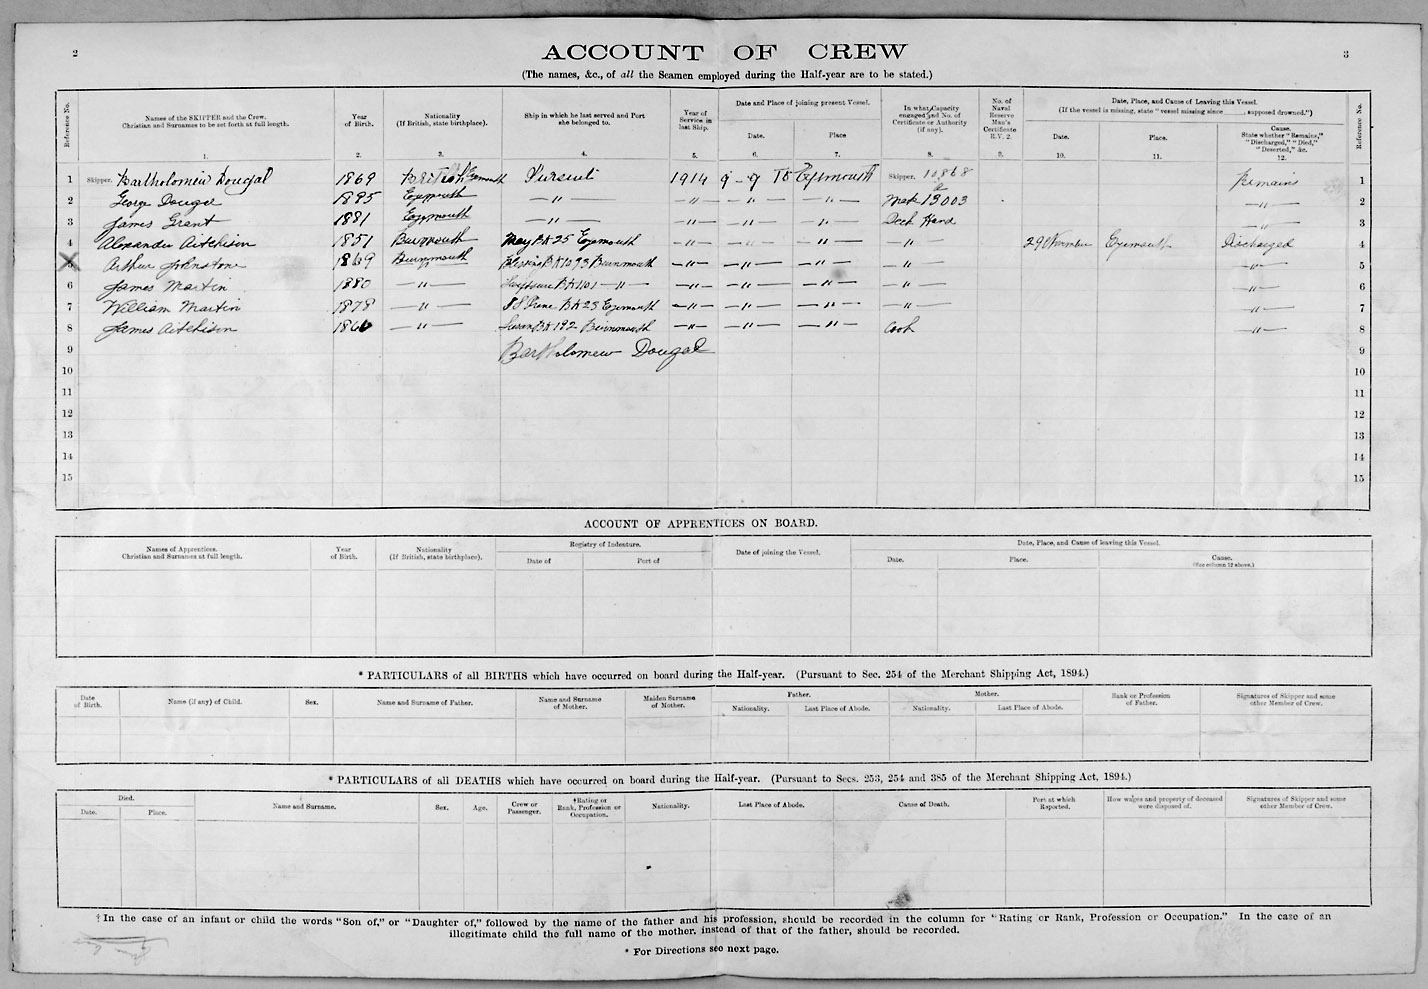 2
ACCOUNT OF CREW
3
(The names, &c., of all the Seamen employed during the Half-year are to be stated.)
Reference No.
Names of the SKIPPER and the Crew.
Christian and Surnames to be set forth at full length.
1.
Year
of Birth.
2.
Nationality
(If British, state birthplace).
3.
Ship in which he last served and Port
she belonged to.
4.
Year of
Service in
last Ship.
5.
Date and Place of joining present Vessel.
Date.
6.
Place
7.
In what Capacity
engaged and No. of
Certificate or Authority
(if any).
8.
No. of
Naval
Reserve
Man's
Certificate
R.V. 2.
9.
Date, Place, and Cause of Leaving this Vessel.
(If the vessel is missing, state "vessel missing since ____, supposed drowned.")
Date.
10.
Place.
11.
Cause.
State whether "Remains,"
"Discharged," "Died,"
"Deserted," &c.
12.
Reference No.
1 Skipper. Bartholomew Dougal 1869 British Eyemouth Pursuit 1914 9-7 To Eyemouth Skipper. 10868 Remains 1
2 George Dougal 1895 Eyemouth —"— —"— —"— —"— Mate 13003 —"— 2
3 James Grant 1881 Eyemouth —"— —"— —"— —"— Deck Hand —"— 3
4 Alexander Aitchison 1851 Burnmouth May BK 25 Eyemouth —"— —"— —"— —"— 29 November Eyemouth Discharged 4
5 Arthur Johnstone 1869 Burnmouth BK 1093 Burnmouth —"— —"— —"— —"— —"— 5
6 James Martin 1880 —"— BK 1101 —"— —"— —"— —"— —"— —"— 6
7 William Martin 1878 —"— Irene BK 23 Eyemouth —"— —"— —"— —"— —"— 7
8 James Aitchison 1866 —"— Susan BK 192 Burnmouth —"— —"— —"— Cook —"— 8
9 Bartholomew Dougal 9
10 10
11 11
12 12
13 13
14 14
15 15
ACCOUNT OF APPRENTICES ON BOARD.
Names of Apprentices.
Christian and Surnames at full length.
Year
of Birth.
Nationality
(If British, state birthplace).
Registry of Indenture.
Date of
Port of
Date of joining the Vessel.
Date, Place, and Cause of leaving this Vessel.
Date.
Place.
Cause.
(See column 12 above.)
* PARTICULARS of all BIRTHS which have occurred on board during the Half-year. (Pursuant to Sec. 254 of the Merchant Shipping Act, 1894.)
Date
of Birth.
Name (if any) of Child.
Sex.
Name and Surname of Father.
Name and Surname
of Mother.
Maiden Surname
of Mother.
Father.
Nationality.
Last Place of Abode.
Mother.
Nationality.
Last Place of Abode.
Rank or Profession
of Father.
Signatures of Skipper and some
other Member of Crew.
* PARTICULARS of all DEATHS which have occurred on board during the Half-year. (Pursuant to Secs. 253, 254 and 385 of the Merchant Shipping Act, 1894.)
Died.
Date.
Place.
Name and Surname.
Sex.
Age.
Crew or
Passenger.
†Rating or
Rank, Profession or
Occupation.
Nationality.
Last Place of Abode.
Cause of Death.
Port at which
Reported.
How wages and property of deceased
were disposed of.
Signatures of Skipper and some
other Member of Crew.
†In the case of an infant or child the words "Son of," or "Daughter of," followed by the name of the father and his profession, should be recorded in the column for "Rating or Rank, Profession or Occupation." In the case of an
illegitimate child the full name of the mother, instead of that of the father, should be recorded.
* For Directions see next page.